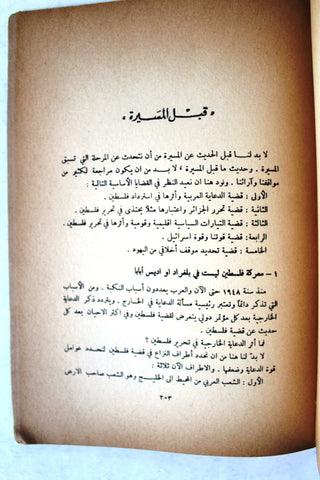 « قبل المسيرة »
لا بد لنا قبل الحديث عن المسيرة من أن نتحدث عن المرحلة التي تسبق
المسيرة . وحديث ما قبل المسيرة ، لا بد من ان يكون مراجعة لكثير من
مواقفنا وآرائنا . ونود هنا ان نعيد النظر في القضايا الأساسية التالية :
الأولى : قضية الدعاية العربية وأثرها في استرداد فلسطين .
الثانية : قضية تحرير الجزائر واعتبارها مثلا يحتذى في تحرير فلسطين .
الثالثة : قضية التيارات السياسية اقليمية وقومية وأثرها في تحرير فلسطين.
الرابعة : قضية قوتنا وقوة اسرائيل .
الخامسة : قضية تحديد موقف أخلاقي من اليهود .
١ – معركة فلسطين ليست في بلغراد او اديس أبابا
منذ سنة ١٩٤٨ حتى الآن والعرب يعددون أسباب النكبة . ومن الأسباب
التي تذكر دائماً وتعتبر رئيسية مسألة الدعاية في الخارج . ويتردد ذكر الدعاية
الخارجية بعد كل مؤتمر دولي يتعرض لقضية فلسطين وفي اكثر الاحيان بعد كل
حديث عن قضية فلسطين .
فما أثر الدعاية الخارجية في تحرير فلسطين ؟
لا بد لنا هنا من ان نحدد أطراف النزاع في قضية فلسطين لنحدد عوامل
قوة الدعاية وضعفها . والاطراف الآن ثلاثة :
الأول : الشعب العربي من المحيط الى الخليج وهو الشعب صاحب الارض
٢٠٣